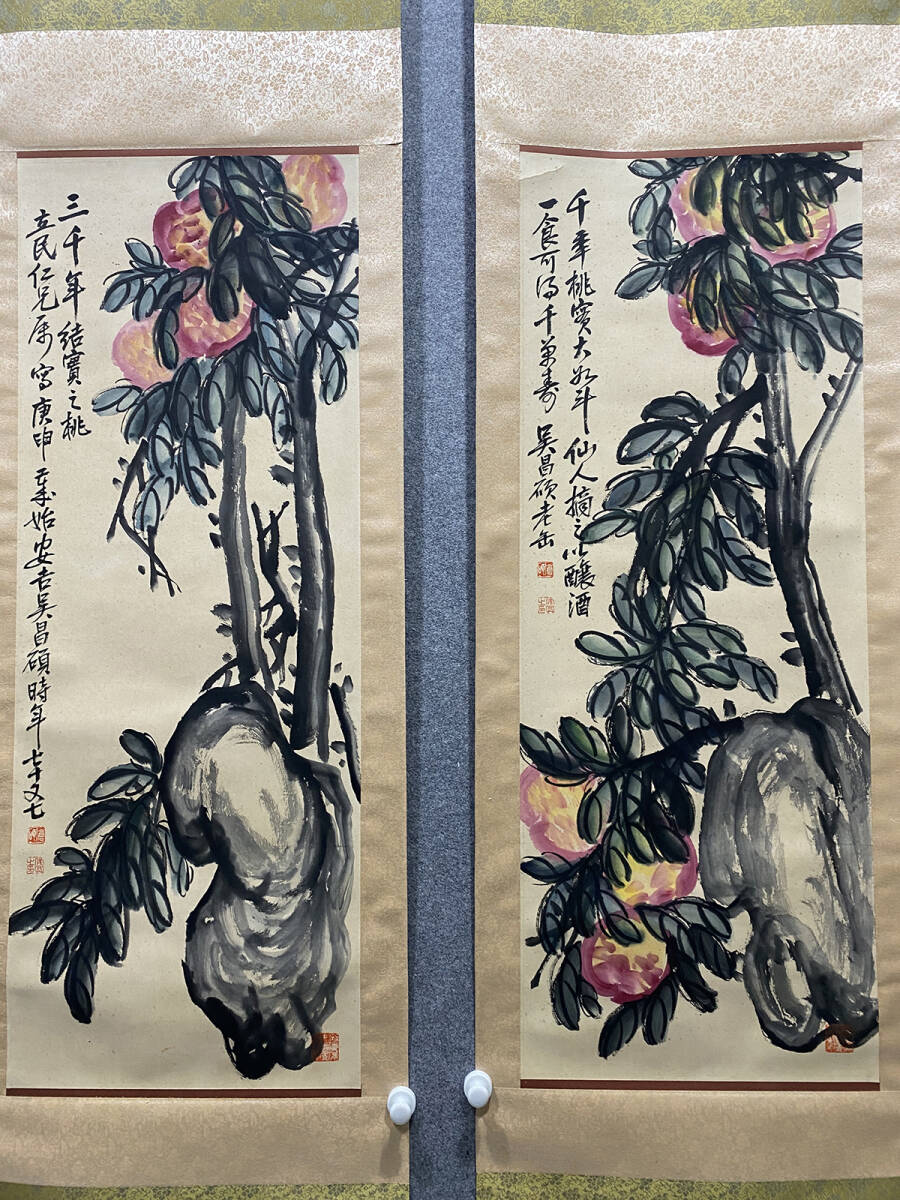 千年桃實大如斗仙人摘之以釀酒
一食可得千萬壽 吳昌碩老缶
三千年結實之桃
立民仁兄屬寫庚申歲始安吉吳昌碩時年七十又七